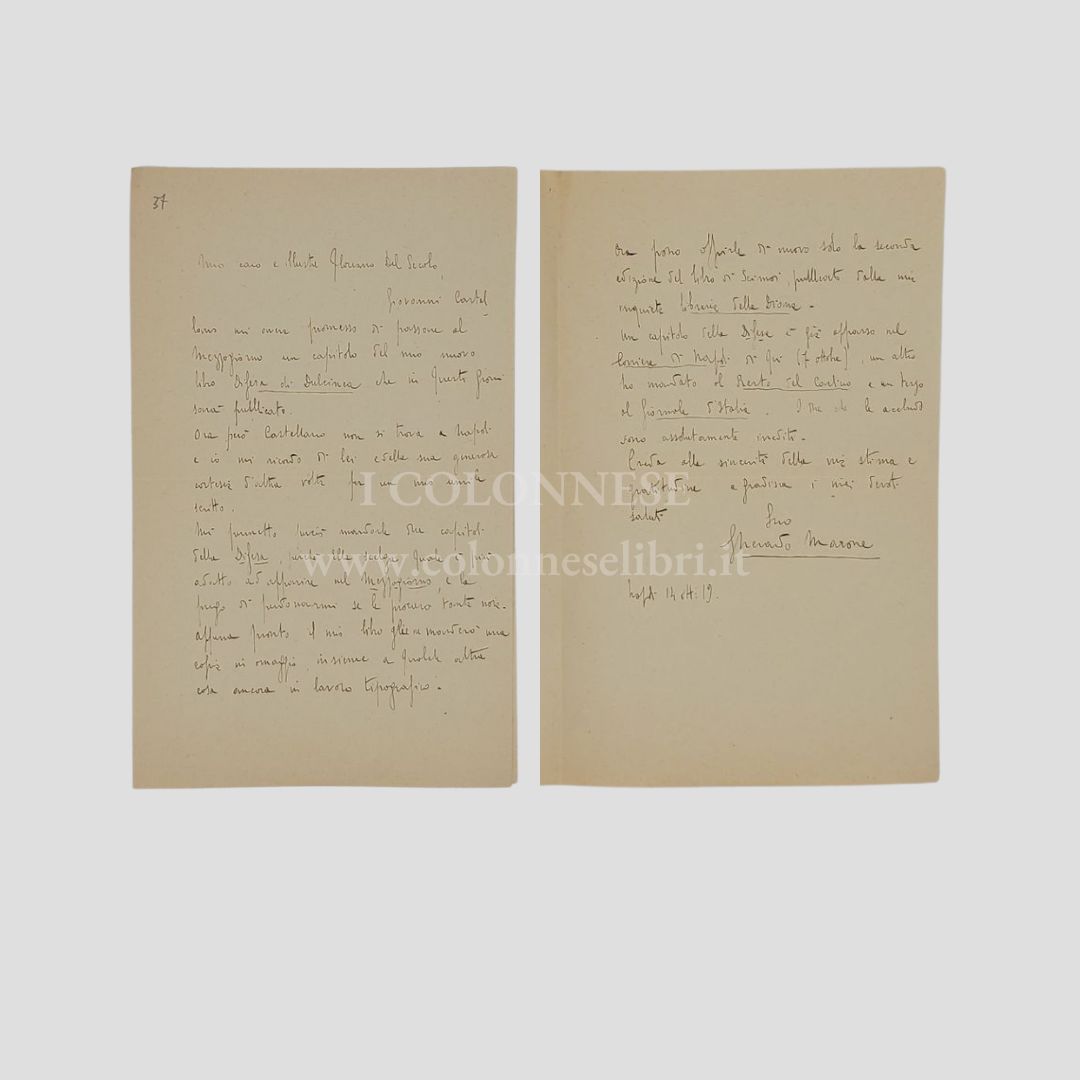 37
Mio caro e illustre Floriano Del Secolo,
Giovanni Castel
lano mi aveva promesso di passare al
Mezzogiorno un capitolo del mio nuovo
libro Difesa di Dulcinea che in questi giorni
sarà pubblicato.
Ora però Castellano non si trova a Napoli
e io mi ricordo di lei e della sua generosa
cortesia d'altra volta per un mio umile
scritto.
Mi permetto perciò mandarle due capitoli
della Difesa, perché ella scelga quale è più
adatto ad apparire nel Mezzogiorno, e la
prego di perdonarmi se le procuro tante noie.
Appena pronto il mio libro gliene manderò una
copia in omaggio, insieme a qualche altra
cosa ancora in lavoro tipografico.
Ora posso offrirle di nuovo solo la seconda
edizione del libro di Scimoi, pubblicato dalla mia
inquieta libreria della Diana.
Un capitolo della Difesa è già apparso nel
Corriere di Napoli di qui (7 ottobre), un altro
ho mandato al Resto del Carlino e un terzo
al Giornale d'Italia. I due che le accludo
sono assolutamente inediti.
Creda alla sincerità della mia stima e
gratitudine e gradisca i miei devoti
saluti
Suo
Gherardo Marone
Napoli 14 ott: 19.
I COLONNESE
www.colonneselibri.it